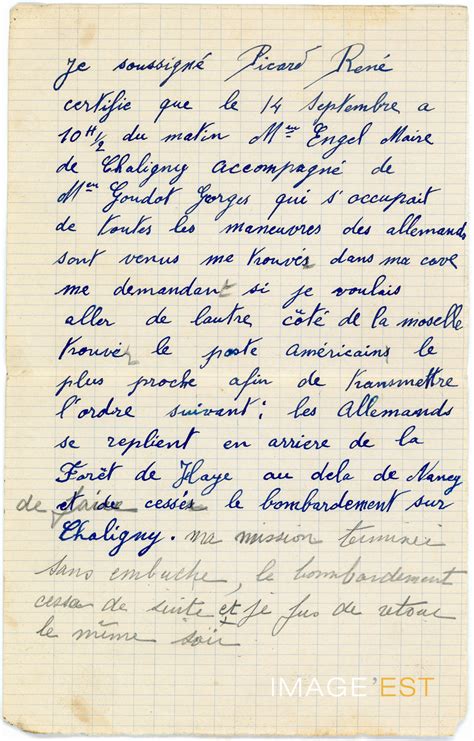 Je soussigné Picard René
certifie que le 14 Septembre a
10 H 1/2 du matin Mr Engel Maire
de Chaligny accompagné de
Mr Goudot Gorges qui s'occupait
de toutes les maneuvres des allemands
sont venus me trouver dans ma cave
me demandant si je voulais
aller de lautre côté de la moselle
trouver le poste américains le
plus proche afin de transmettre
l'ordre suivant; les Allemands
se replient en arriere de la
Forêt de Haye au dela de Nancy
de faire cessés le bombardement sur
Chaligny. ma mission terminée
sans embuche, le bombardement
cessa de suite et je fus de retour
le même soir
IMAGE'EST